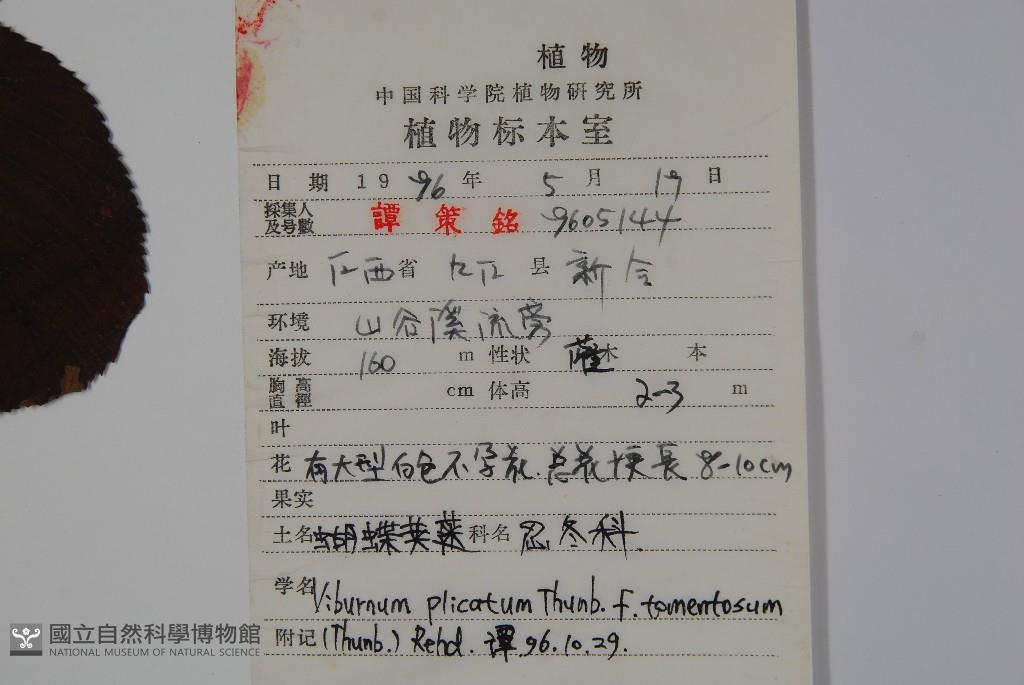 植物
中国科学院植物研究所
植物标本室
日 期 19 96 年 5 月 19 日
採集人及号數 譚策銘 9605144
产地 江西省 九江 县 新合
环境 山谷溪流旁
海拔 160 m 性状 灌木 本
胸高直徑 cm 体高 2-3 m
叶
花 有大型白色不孕花.总花梗長 8-10cm
果实
土名 蝴蝶荚蒾 科名 忍冬科.
学名 Viburnum plicatum Thunb. f. tomentosum
附记 (Thunb.) Rehd. 譚.96.10.29.
國立自然科學博物館
NATIONAL MUSEUM OF NATURAL SCIENCE